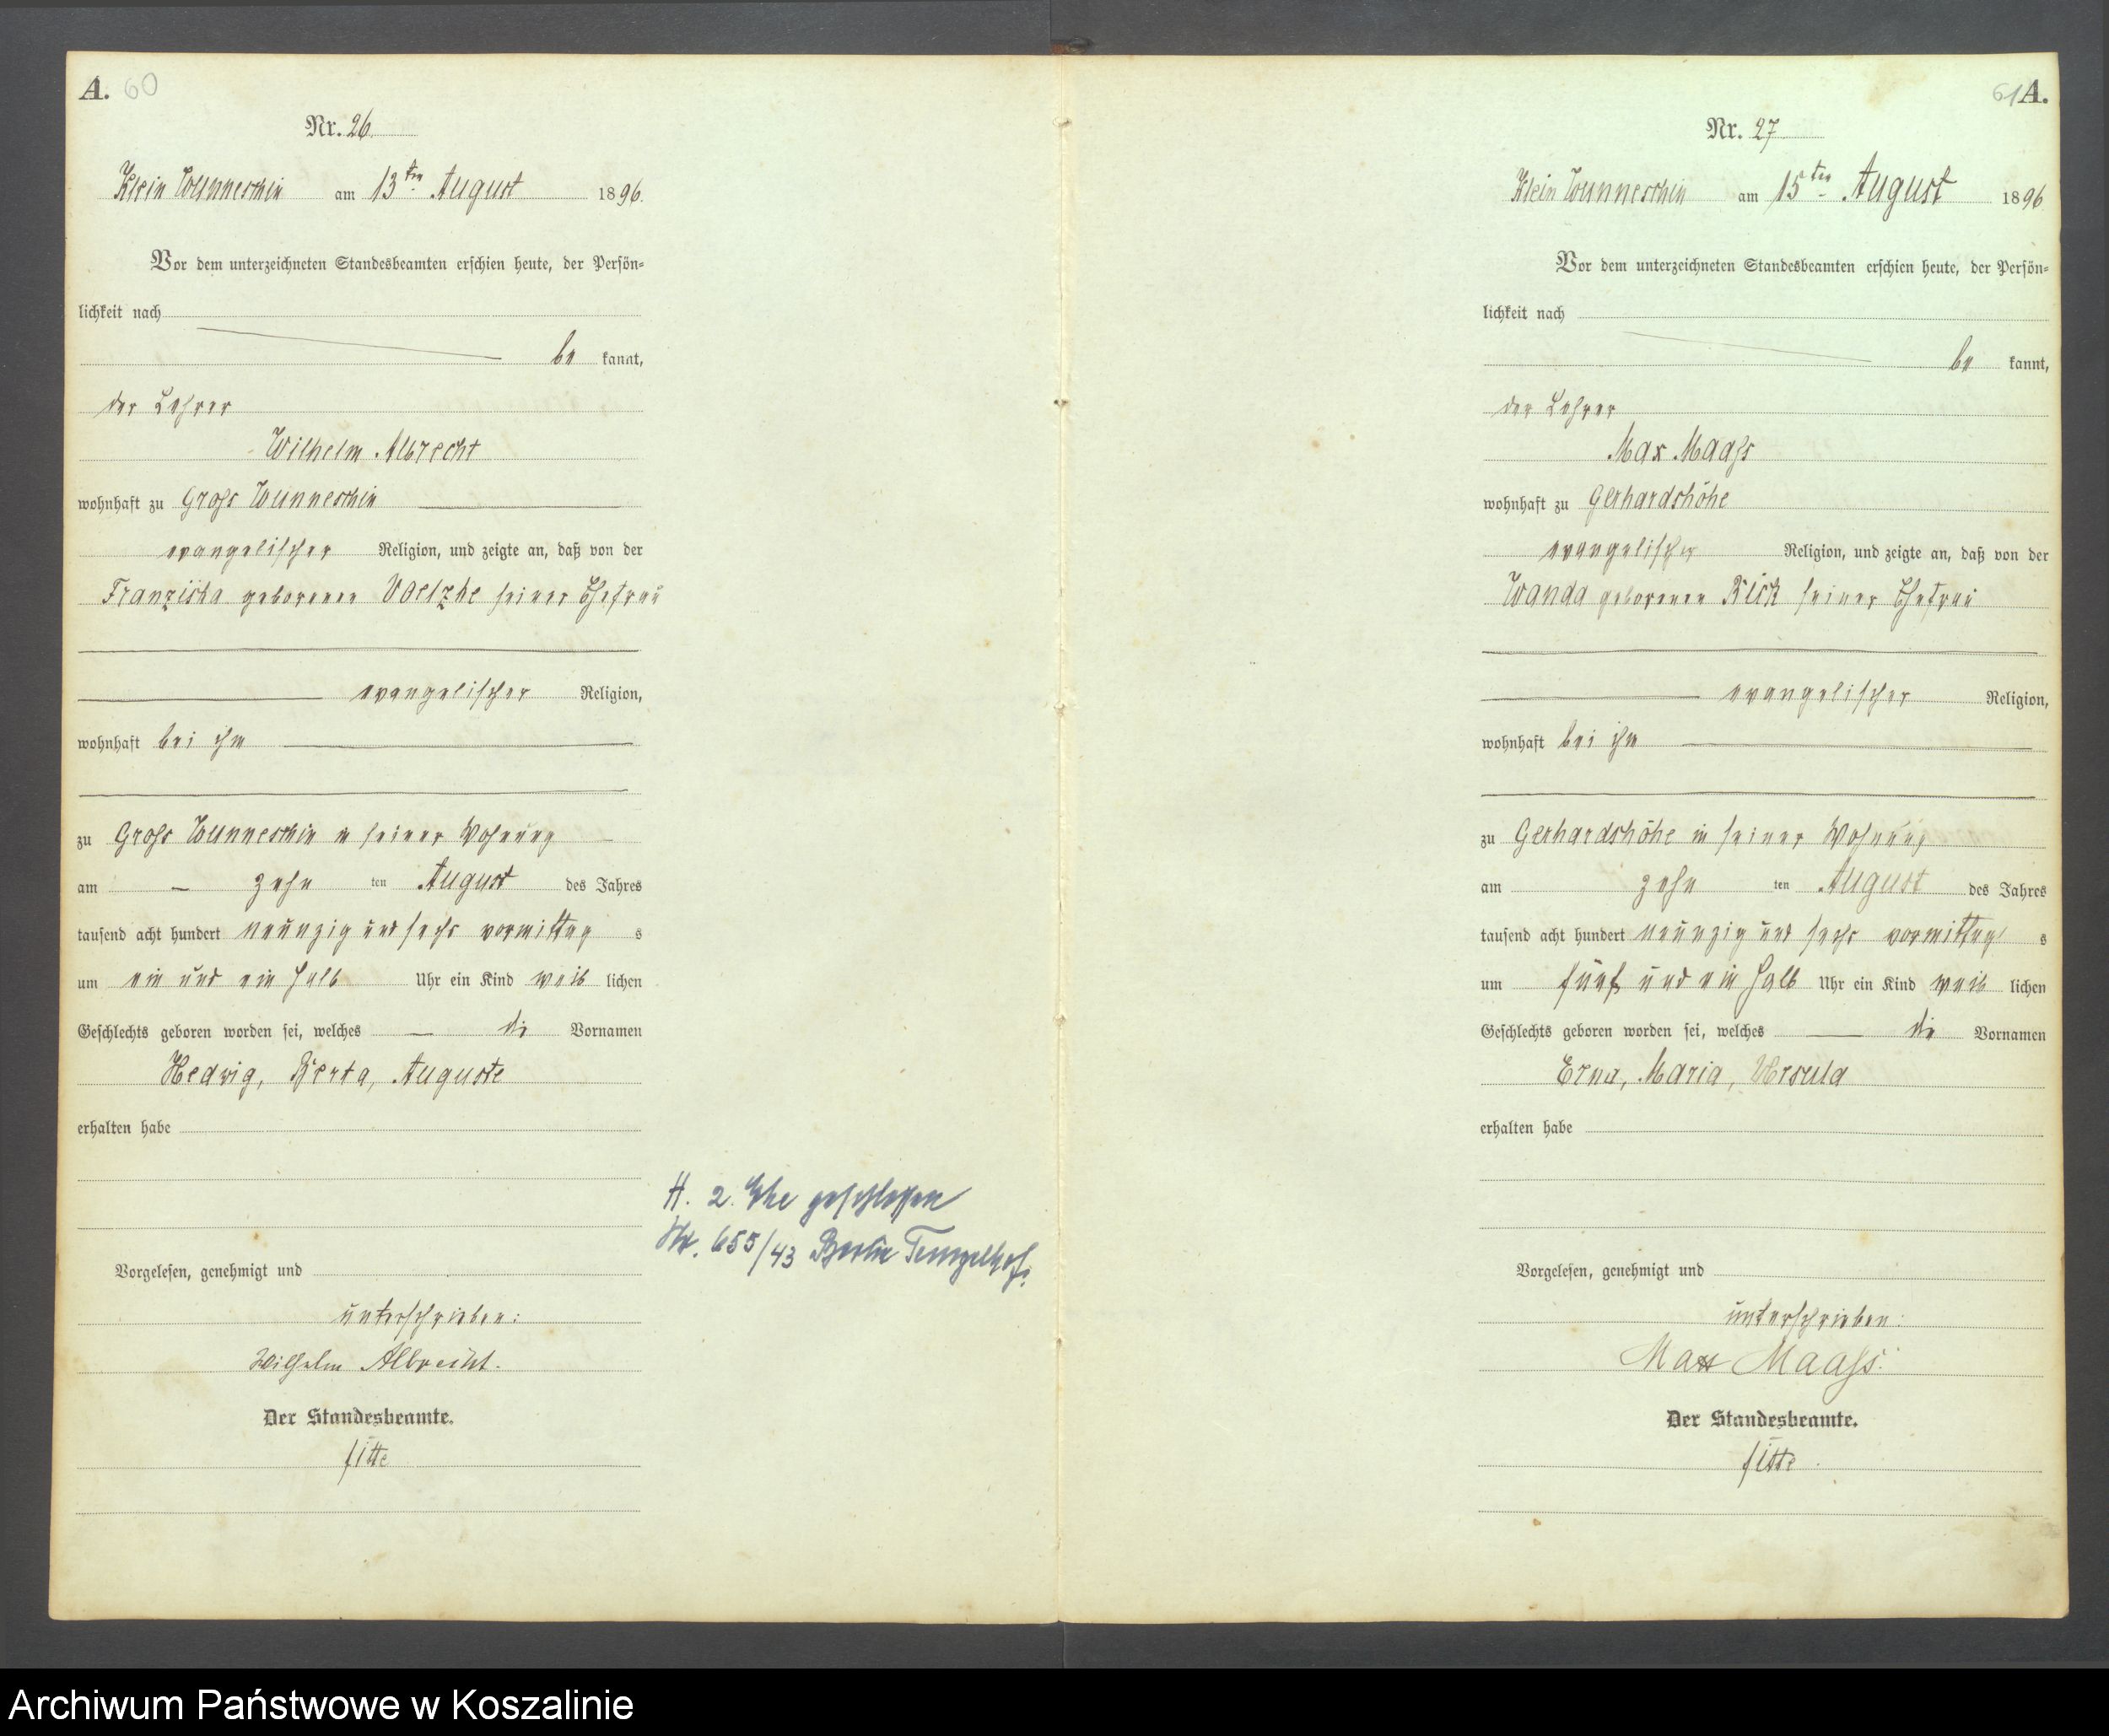 A. 60
Nr. 26
Klein Wunneschin am 13ten August 1896.
Vor dem unterzeichneten Standesbeamten erschien heute, der Persön-
lichkeit nach
be kannt,
der Lehrer
Wilhelm Albrecht
wohnhaft zu Groß Wunneschin
evangelischer Religion, und zeigte an, daß von der
Franziska geborenen Voelzke seiner Ehefrau
evangelischer Religion,
wohnhaft bei ihm
zu Groß Wunneschin in seiner Wohnung
am zehn ten August des Jahres
tausend acht hundert neunzig und sechs vormittag s
um ein und ein halb Uhr ein Kind weib lichen
Geschlechts geboren worden sei, welches die Vornamen
Hedwig, Berta, Auguste
erhalten habe
H. 2. Ehe geschlossen
Nr. 655/43 Berlin Tempelhof.
Vorgelesen, genehmigt und
unterschrieben:
Wilhelm Albrecht.
Der Standesbeamte.
61 A.
Nr. 27
Klein Wunneschin am 15ten August 1896
Vor dem unterzeichneten Standesbeamten erschien heute, der Persön-
lichkeit nach
be kannt,
der Lehrer
Max Maaß
wohnhaft zu Gerhardshöhe
evangelischer Religion, und zeigte an, daß von der
Wanda geborenen Rick seiner Ehefrau
evangelischer Religion,
wohnhaft bei ihm
zu Gerhardshöhe in seiner Wohnung
am zehn ten August des Jahres
tausend acht hundert neunzig und sechs vormittag s
um fünf und ein halb Uhr ein Kind weib lichen
Geschlechts geboren worden sei, welches die Vornamen
Erna, Maria, Ursula
erhalten habe
Vorgelesen, genehmigt und
unterschrieben:
Max Maaß.
Der Standesbeamte.
Archiwum Państwowe w Koszalinie